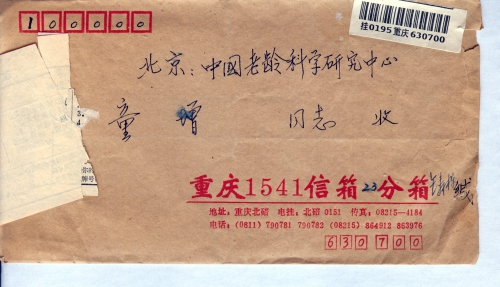 100000
挂0195重庆630700
北京:中國老龄科学研究中心
童增 同志 收
3.
4
重庆1541信箱23分箱
缄
地址:重庆北碚 电挂:北碚 0151 传真:08215—4184
电话:(0811) 790781 790782 (08215) 864912 863976
630700